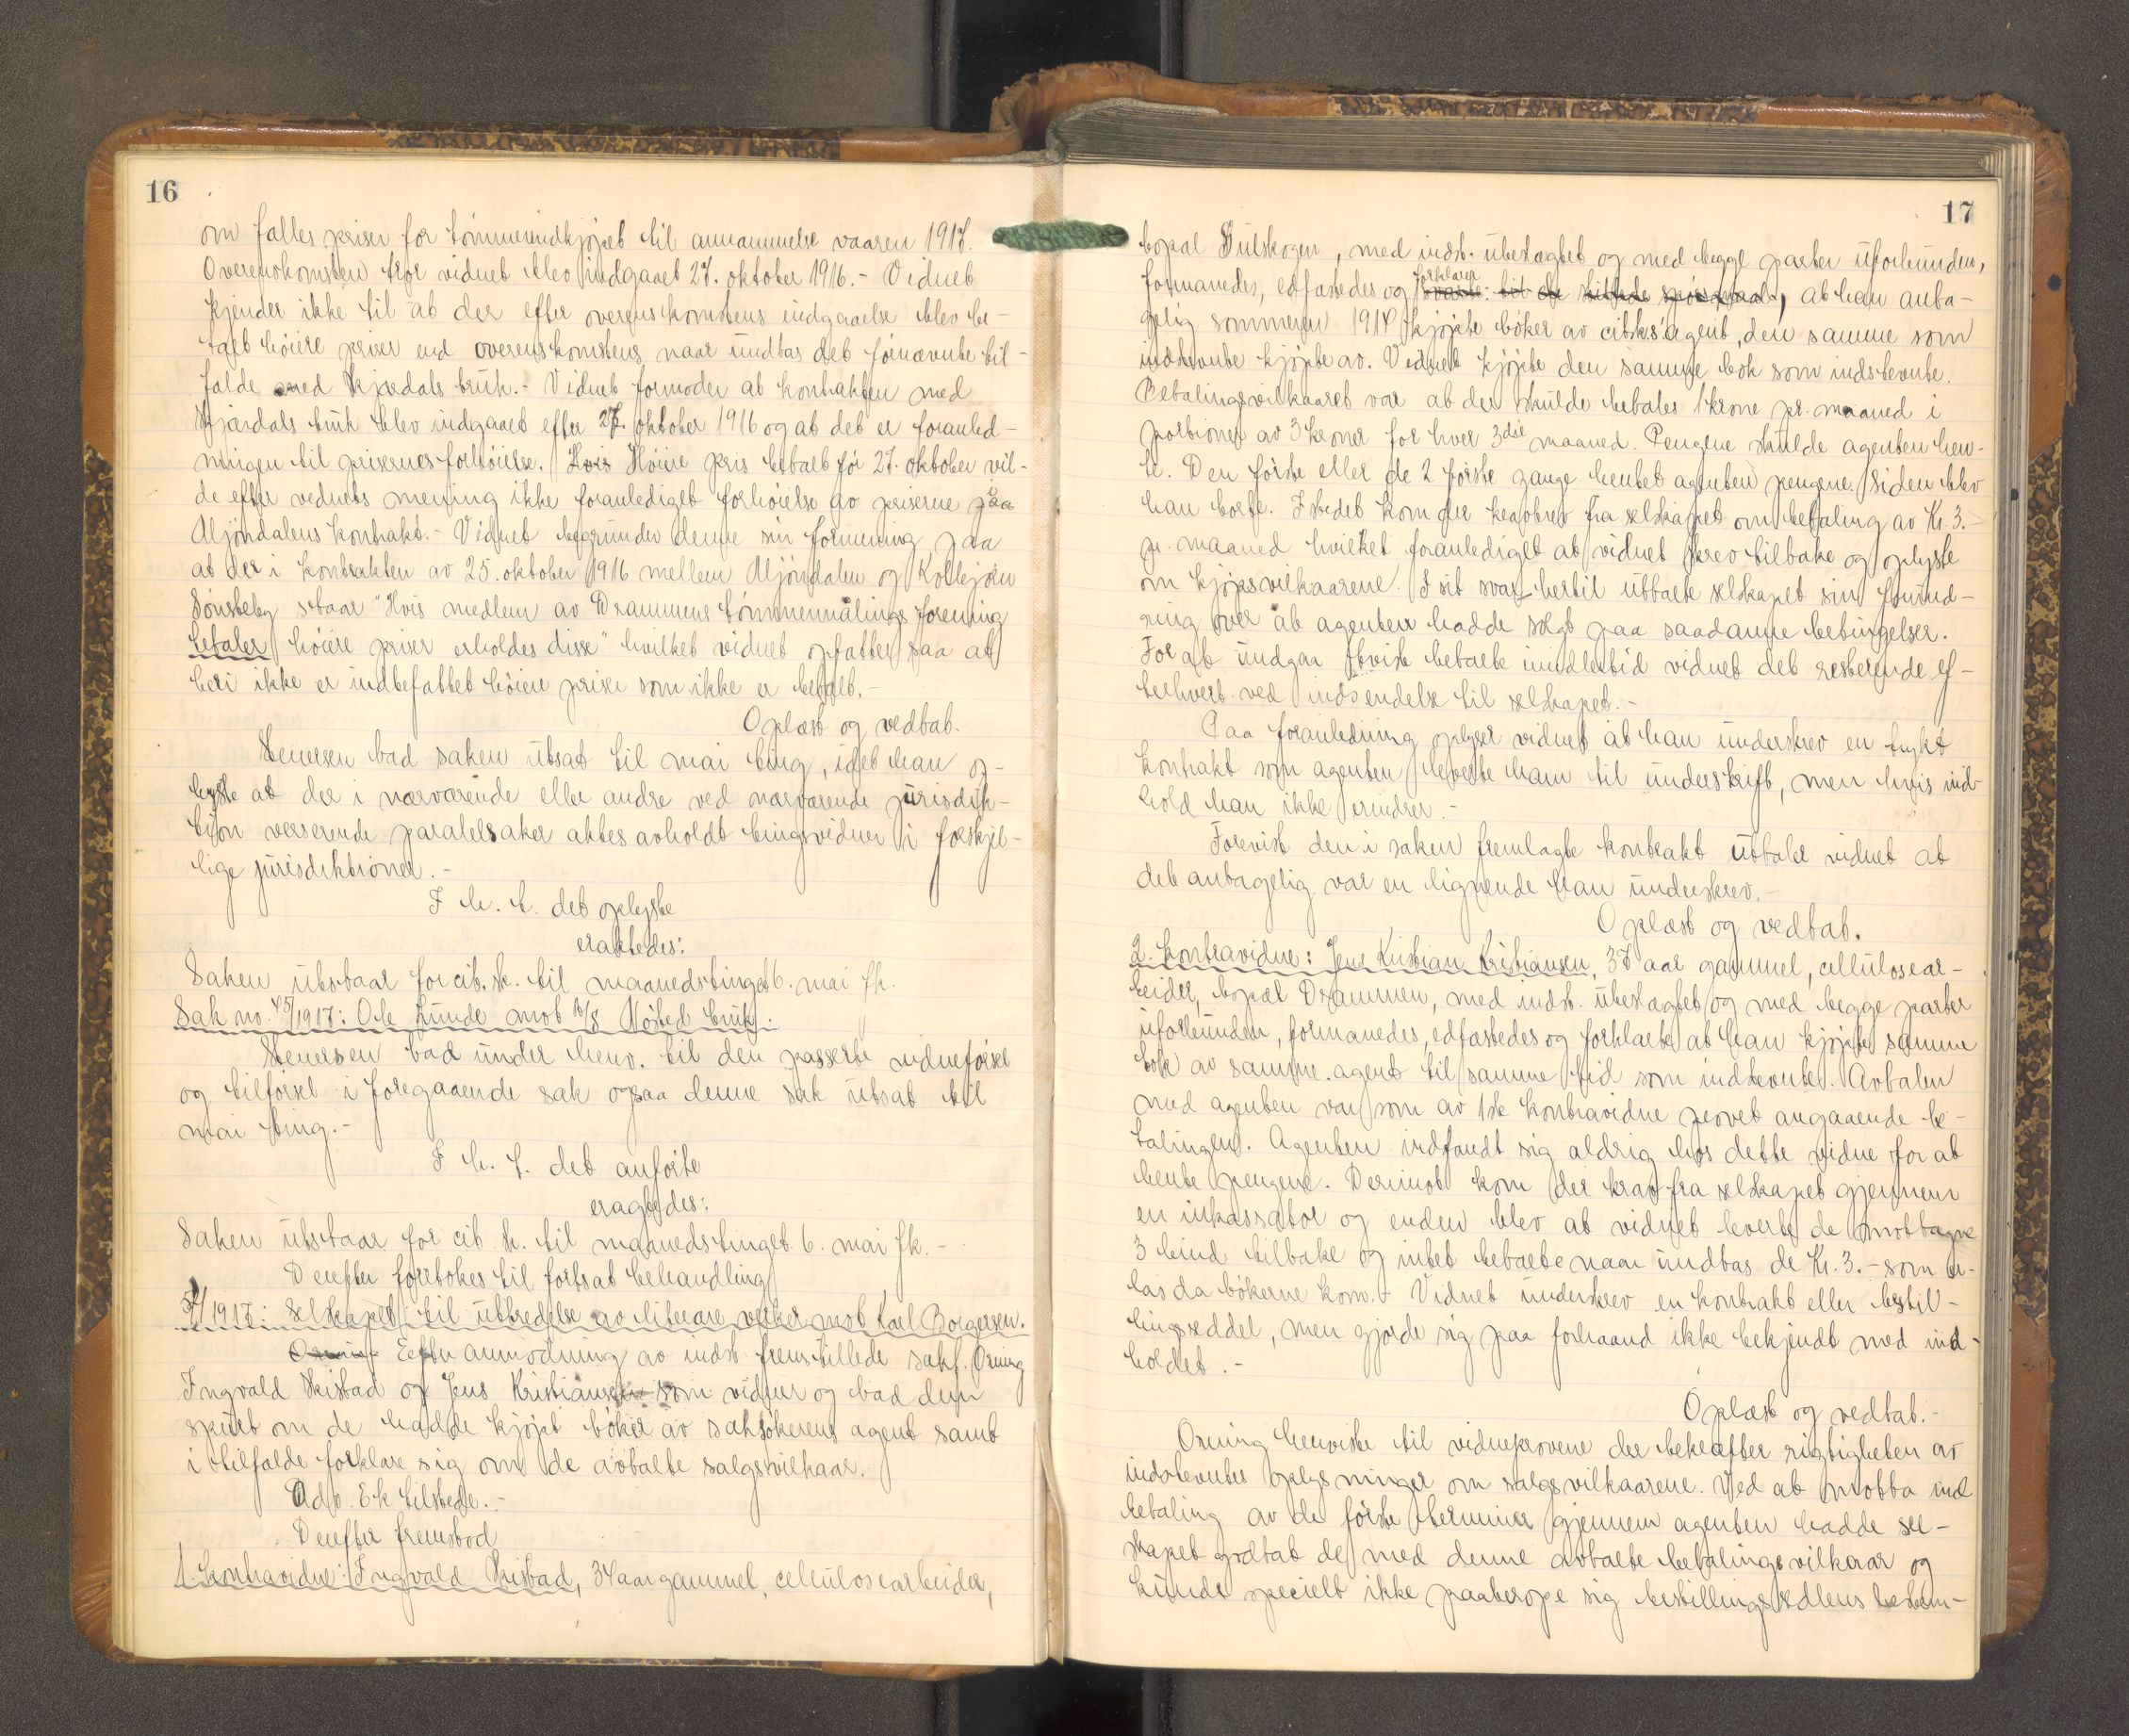 16
om fælles priser for tømmerindkjøpet til annammelse vaaren 1917.
Overenskomsten tror vidnet blev indgaaet 27. oktober 1916.- Vidnet
kjender ikke til at der efter overenskomstens indgaaelse blev be-
talt høiere priser end overenskomstens naar undtas det førnævnte til-
fælde med Skjærdals bruk.- Vidnet formoder at kontrakten med
Skjærdals bruk blev indgaaet efter 27. oktober 1916 og at det er foranled-
ningen til prisernes forhøielse. Hvis Høiere pris betalt før 27. oktober vil-
de efter vidnets mening ikke foranlediget forhøielse av priserne paa
Mjøndalens kontrakt.- Vidnet begrunder denne sin formening paa
at der i kontrakten av 25. oktober 1916 mellem Mjøndalen og Kolbjørn
Sønsteby staar "Hvis medlem av Drammens tømmermålings forening
betaler høiere priser erholdes disse" hvilket vidnet opfatter saa at
heri ikke er indbefattet høiere priser som ikke er betalt.-
Oplæst og vedtat.
Stenersen bad saken utsat til mai ting, idet han op-
lyste at der i nærværende eller andre ved nærværende jurisdik-
tion verserende paralelsaker aktes avholdt tingsvidner i forskjel-
lige jurisdiktioner.-
I h. t. det oplyste
eragtedes:
Saken utstaar for cit. sk. til maanedstinget 6. mai fk.
Sak no. 45/1917: Ole Lunde mot A/S Nøsted bruk.
Stenersen bad under henv. til den passerte vidneførsel
og tilførsel i foregaaende sak ogsaa denne sak utsat til
mai ting.-
I h. t. det anførte
eragtedes:
Saken utstaar for cit sk. til maanedstinget 6. mai fk.-
Derefter foretokes til fortsat behandling
/1917: Selskapet til utbredelse av literære verker mot Karl Borgersen.
Efter anmodning av indst. fremstillede sakf. Orning
Ingvald Skistad og Jens Kristiansen som vidner og bad dem
spurt om de hadde kjøpt bøker av saksøkerens agent samt
i tilfælde forklare sig om de avtalte salgsvilkaar.
Adv. Ek tilstede.-
Derefter fremstod
1. kontravidne: Ingvald Skistad, 34 aar gammel, cellulosearbeider,
17
bopæl Gulskogen, med indst. ubeslægtet og med begge parter uforbunden,
formanedes, edfæstedes og forklarer svarte til de stillede spørsmaal, at han anta-
gelig sommeren 1914 kjøpte bøker av citsk.s agent, den samme som
indstevnte kjøpte av. Vidnet kjøpte den samme bok som indstevnte.
Betalingsvilkaaret var at der skulde betales 1 krone pr. maaned i
portioner av 3 kroner for hver 3die maaned. Pengene skulde agenten hen-
te. Den første eller de 2 første gange hentet agenten pengene. Siden blev
han borte. Istedet kom der kravbrev fra selskapet om betaling av Kr. 3.-
pr. maaned hvilket foranlediget at vidnet skrev tilbake og oplyste
om kjøpsvilkaarene. I sit svar hertil uttalte selskapet sin forund-
ring over at agenten hadde solgt paa saadanne betingelser.
For at undgaa tvist betalte imidlertid vidnet det resterende ef-
terhvert ved indsendelse til selskapet.-
Paa foranledning oplyser vidnet at han underskrev en trykt
kontrakt som agenten leverte ham til underskrift, men hvis ind-
hold han ikke erindrer.-
Forevist den i saken fremlagte kontrakt uttaler vidnet at
det antagelig var en lignende han underskrev.-
Oplæst og vedtat.
2. kontravidne: Jens Kristian Kristiansen, 37 aar gammel, cellulosear-
beider, bopæl Drammen, med indst. ubeslægtet og med begge parter
uforbunden, formanedes, edfæstedes og forklarte at han kjøpte samme
bok av samme agent til samme tid som indstevnte. Avtalen
med agenten var som av 1ste kontravidne prøvet angaaende be-
talingen. Agenten indfandt sig aldrig hos dette vidne for at
hente pengene. Derimot kom der krav fra selskapet gjennem
en inkassator og enden blev at vidnet leverte de mottagne
3 bind tilbake og intet betalte naar undtas de Kr. 3.- som er-
la's da bøkerne kom.- Vidnet underskrev en kontrakt eller bestil-
lingsseddel, men gjorde sig paa forhaand ikke bekjendt med ind-
holdet.-
Oplæst og vedtat.-
Orning henviste til vidneprovene der bekræfter rigtigheten av
indstevntes oplysninger om salgsvilkaarene. Ved at motta ind
betaling av de første terminer gjennem agenten hadde sel-
skapet godtat de med denne avtalte betalingsvilkaar og
kunde specielt ikke paaberope sig bestillingssedlens bestem-